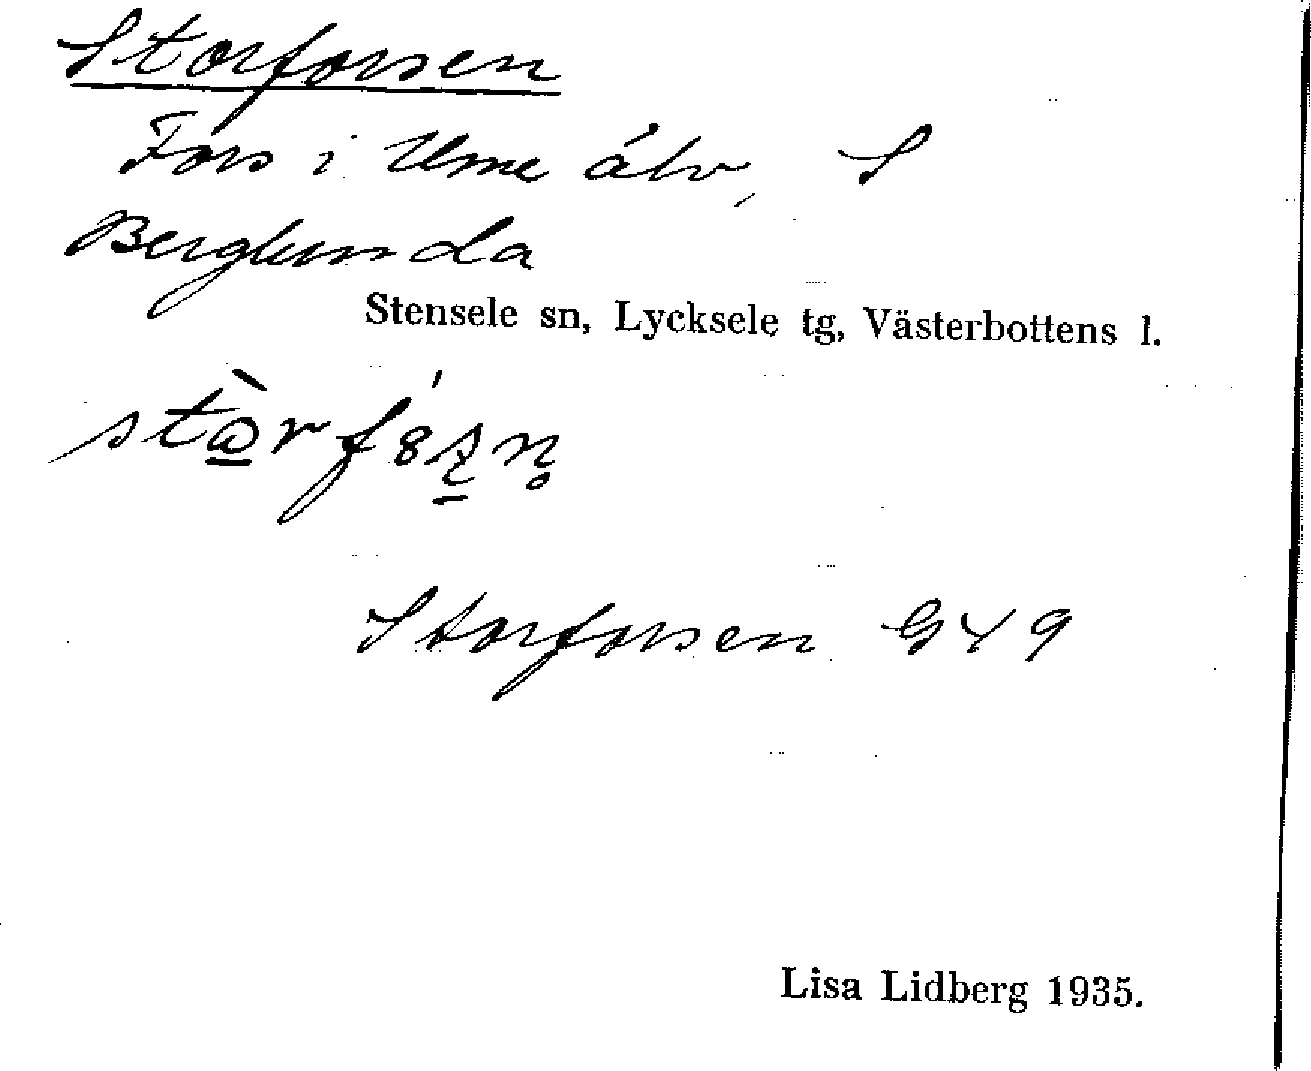 Storforsen
Fors i Ume älv, S
Berglunda
Stensele sn, Lycksele tg, Västerbottens l.
Storforsen G49
Lisa Lidberg 1935.